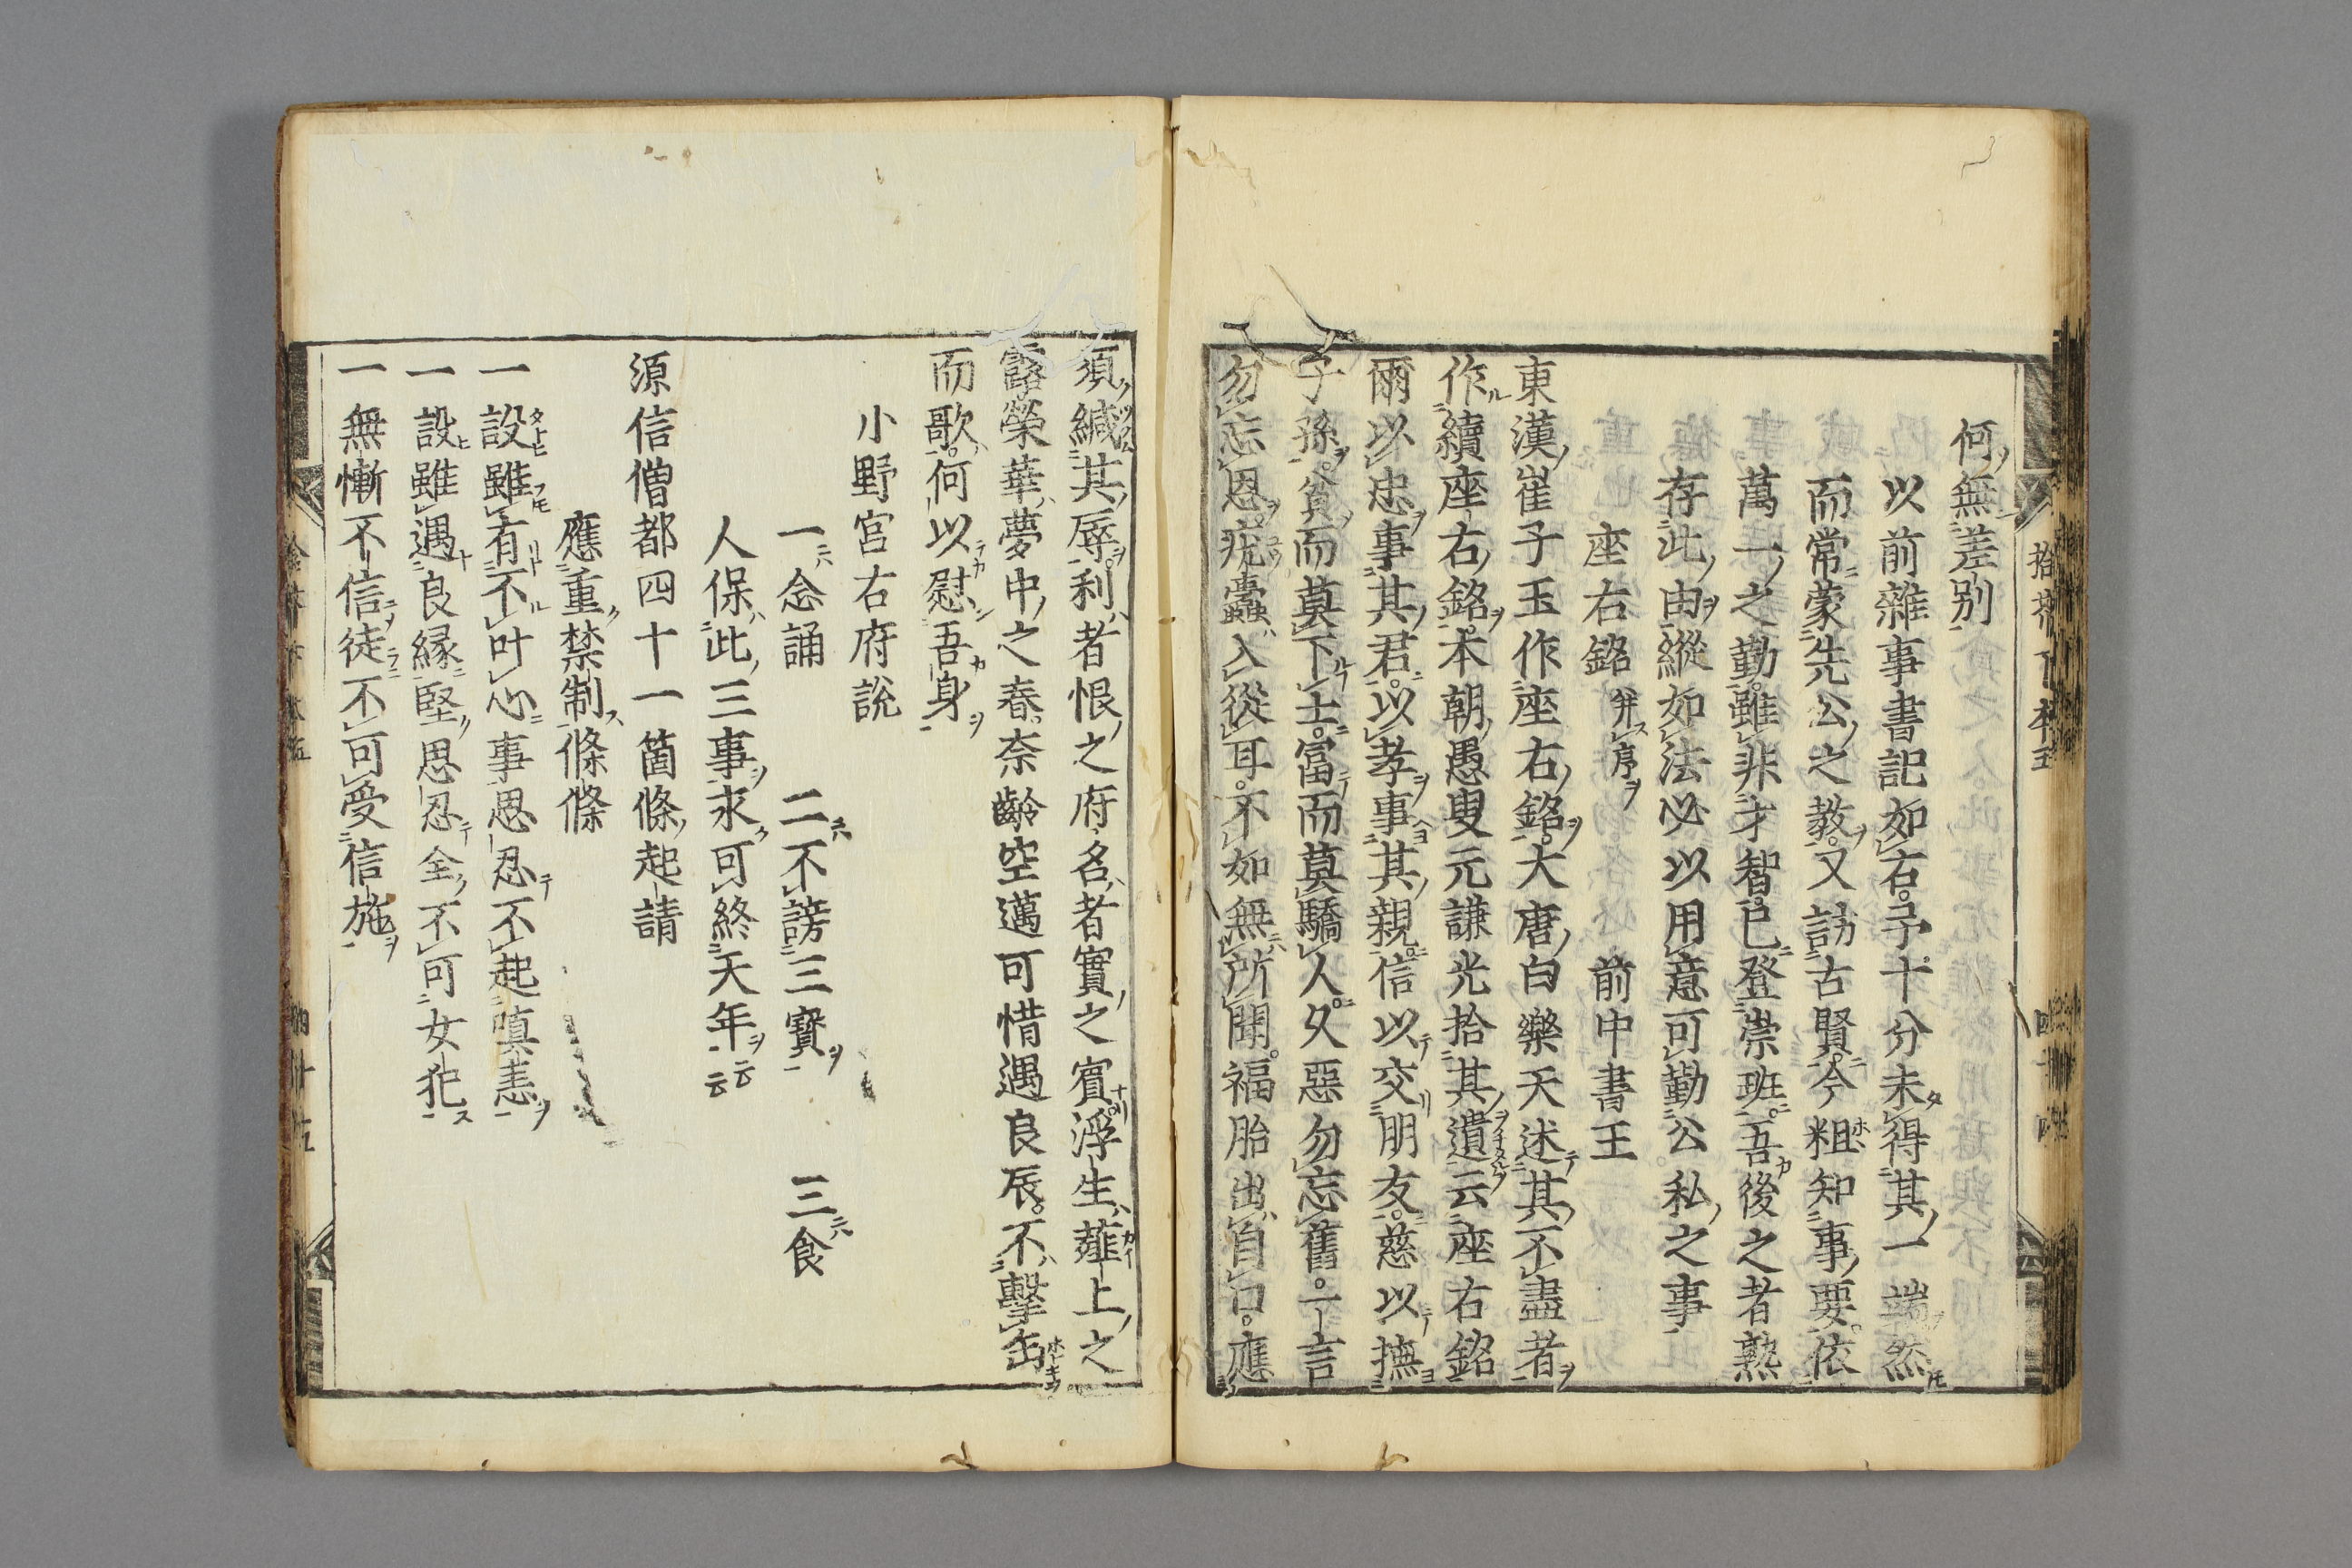 何無差别
以前雜事書記如右予十分未得其一端然
而常蒙先公之教又訪古賢今粗知事要依
萬一之勤雖非才智已登崇班吾後之者熟
存此由縱如法必以用意可勤公私之事
座右銘 并序 前中書王
東漢崔子玉作座右銘大唐白樂天述其不盡者
作續座右銘本朝愚叟元謙光拾其遺云座右銘
爾以忠事其君以孝事其親信以交朋友慈以撫
子孫貧而莫下士富而莫驕人久惡勿忘舊一言
勿忘恩疣蠹入從耳不如無所聞福胎出自口應
拾芥下本
須緘其辱利者恨之府名者實之賓浮生薤上之
露榮華夢中之春奈齡空邁可惜遇良辰不擊缶
而歌何以慰吾身
小野宮右府說
一念誦 二不謗三寶 三食
人保此三事求可終天年云云
源信僧都四十一箇條起請
應重禁制條條
一設雖有不叶心事思忍不起嗔恚
一設雖遇良縁堅思忍全不可女犯
一無慚不信徒不可受信施